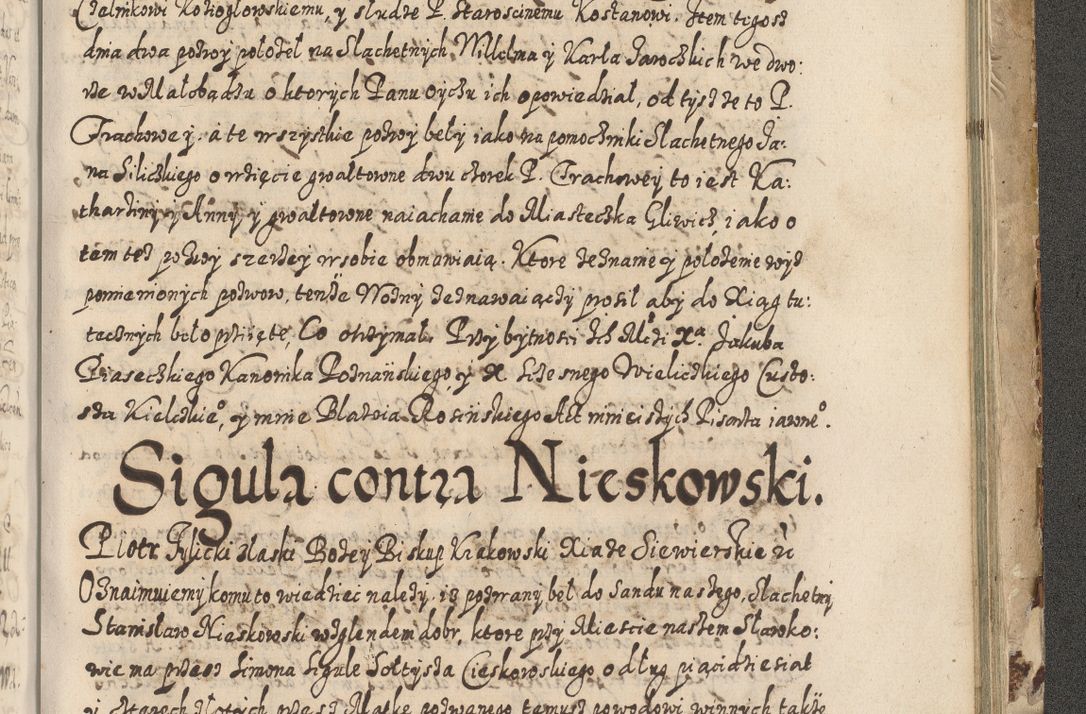 Czelnikowi Kozioglowskiemu, y sludze P. Staroscinemu Kostanowi. Item tigosz
dnia dwa pozwy polozel na Slachetnych Wilhelma y Karla Jaroczkich we dwo:
rze w Malcbądzu o ktorych Panu oychu ich opowiedzial, od tysz ze to P.
Trachowey. a te wszystkie pozwy bely iako na pomocniki Slachetnego Ja:
na Siliczkiego o wzięcie gwaltowne dwu czorek P. Trachowey to iest Ka:
tharziny y Anny, y gwaltowne naiachanie do Miasteczka Gliwicz, iako o
tem tesz pozwy szerzey w sobie obmawiaią. Ktore zeznanie y polozenie wysz
pomienionych pozwow, tenze Wozny zeznawaiączy prosil aby do Xiąg tu:
tecznych belo przięte, Co otrzymal. Przy bytnosci Ich Mczi Xa. Jakuba
Piaseczkiego Kanonika Poznanskiego, y X Sczesnego Wieliczkiego Custo:
sza Kielczkieo, y mnie Blazeia Rosinskiego Act ninieiszych Pisarza iawneo.
Sigula contra Nieskowski.
Piotr Tylicki z laski Bozey Biskup Krakowski Xiąze Siewierskie etc
Oznaimuiemy komu to wiedziec nalezy. isz pozwany bel do Sandu naszego, Slachetny
Stanislaw Nieskowski wzglendem dobr, ktore przy Miescie naszem Slawko:
wie ma przesz Simona Sigule Soltysza Cieskowskiego o dlug piącidziesiat
y czterech zlotych przesz Matkę pozwanego temusz powodowi winnych takze